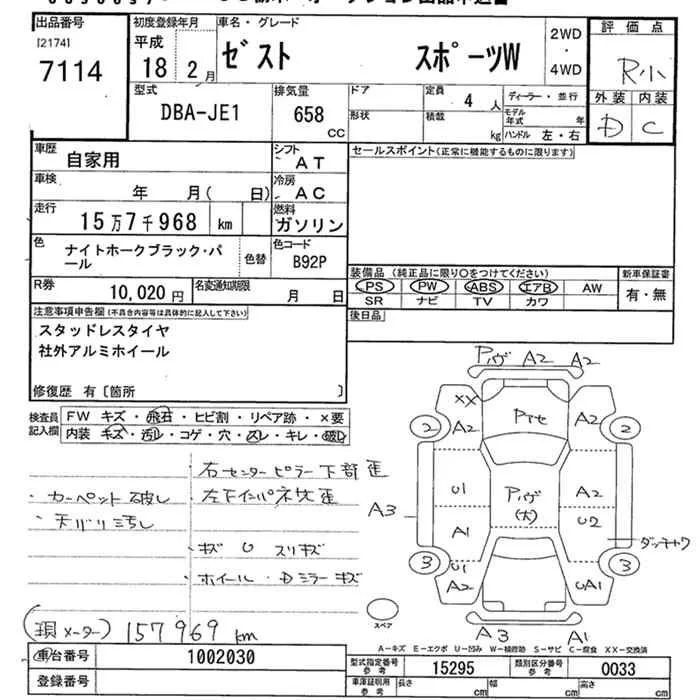 出品番号
[2174]
7114
初度登録年月
平成
18 2月
車名・グレード
ゼスト スポーツW
2WD
・
4WD
評価点
R小
外装 内装
D C
型式
DBA-JE1
排気量
658
CC
ドア
形状
定員
4人
積載
kg
ディーラー・並行
モデル年式 年
ハンドル 左・右
車歴
自家用
シフト
AT
車検
年 月( 日)
冷房
AC
走行
15万7千968 km
燃料
ガソリン
色
ナイトホークブラック・パール
色替
色コード
B92P
R券
10,020円
名変通知期限
月 日
セールスポイント(正常に機能するものに限ります)
装備品(純正品に限り○をつけてください)
PS PW ABS エアB AW
SR ナビ TV カワ
新車保証書
有・無
後日品
注意事項申告欄(不具合内容等は具体的に記入して下さい)
スタッドレスタイヤ
社外アルミホイール
修復歴 有〔箇所 〕
検査員記入欄
FW キズ・飛石・ヒビ割・リペア跡・×要
内装 キズ・汚レ・コゲ・穴・スレ・キレ・破レ
右センターピラー下部歪
・カーペット破レ
左下インパネ欠歪
・天バリ汚レ
・キズ U スリキズ
・ホイール・Dミラーキズ
(現メーター) 157969 km
PハゲA2 A2
XX
A2
Pヤセ
A2
2
2
U1
Pハゲ
(大)
A2
A3
A1
U2
ダッチャク
3
3
U1
A2
UA1
A3 A1
スペア
A-キズ E-エクボ U-凹み W-補修跡 S-サビ C-腐食 XX-交換済
車台番号
1002030
登録番号
型式指定番号
参考
15295
類別区分番号
参考
0033
車庫証明用
参考
長さ cm
幅 cm
高さ cm